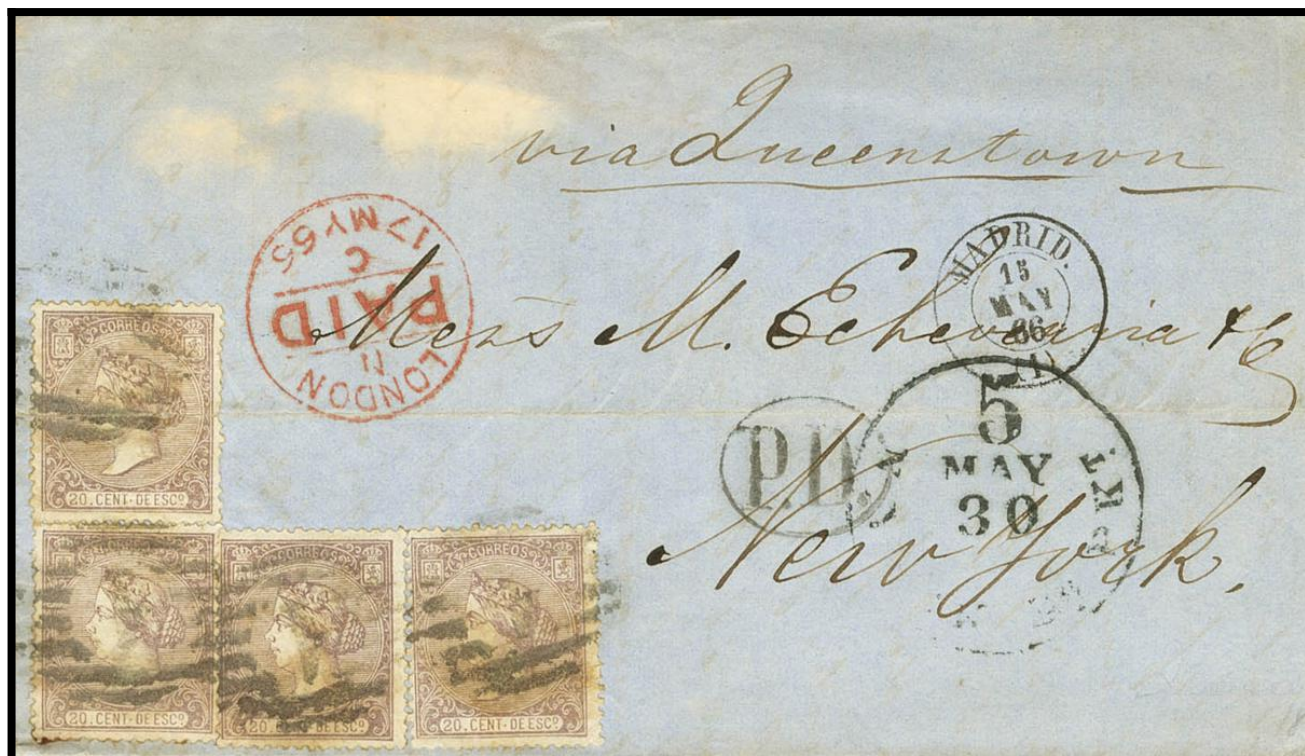 via Queenstown
MADRID.
15
MAY
66
(1)
LONDON
PAID
C
17 MY 65
Mess M. Echeverria & Co
5
MAY
30
P.D.
New York.
CORREOS
20. CENT. DE ESCO
CORREOS
20. CENT. DE ESCO
CORREOS
20. CENT. DE ESCO
CORREOS
20. CENT. DE ESCO